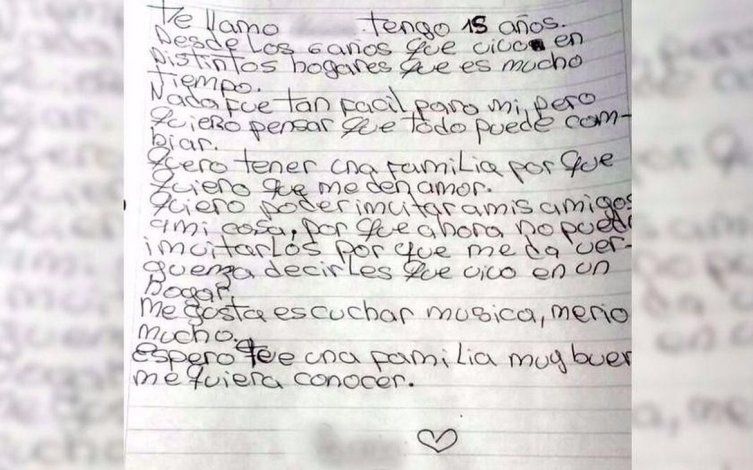 Te llamo tengo 15 años.
Desde los 6 años que vivo en
Distintos hogares que es mucho
tiempo.
Nada fue tan facil para mi, pero
Quiero pensar que todo puede cam-
biar.
Quero tener una familia por que
quiero que me den amor.
Quiero poder invitar a mis amigos
a mi casa, por que ahora no puedo
invitarlos por que me da ver-
guenza decirles que vivo en un
hogar.
Me gosta escuchar musica, me rio
mucho.
espero que una familia muy buen
me quiera conocer.